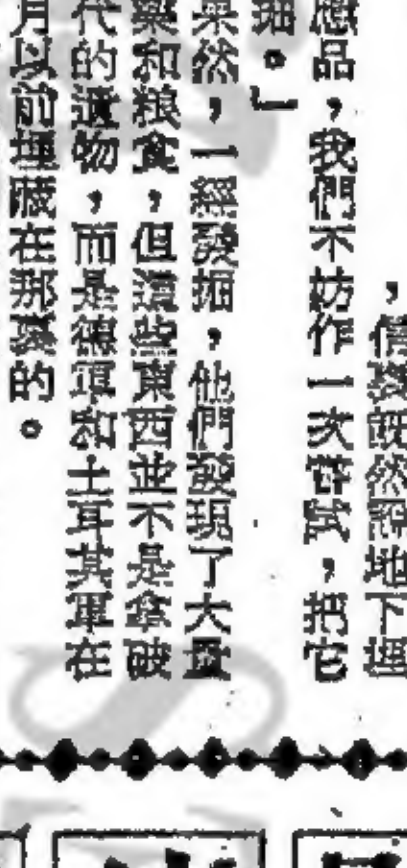 ，信裏既然說地下埋
應品，我們不妨作一次嘗試，把它
掘。」
果然，一經發掘，他們發現了大量
藥和粮食，但這些東西並不是拿破
代的遺物，而是德軍和土耳其軍在
月以前埋藏在那裏的。